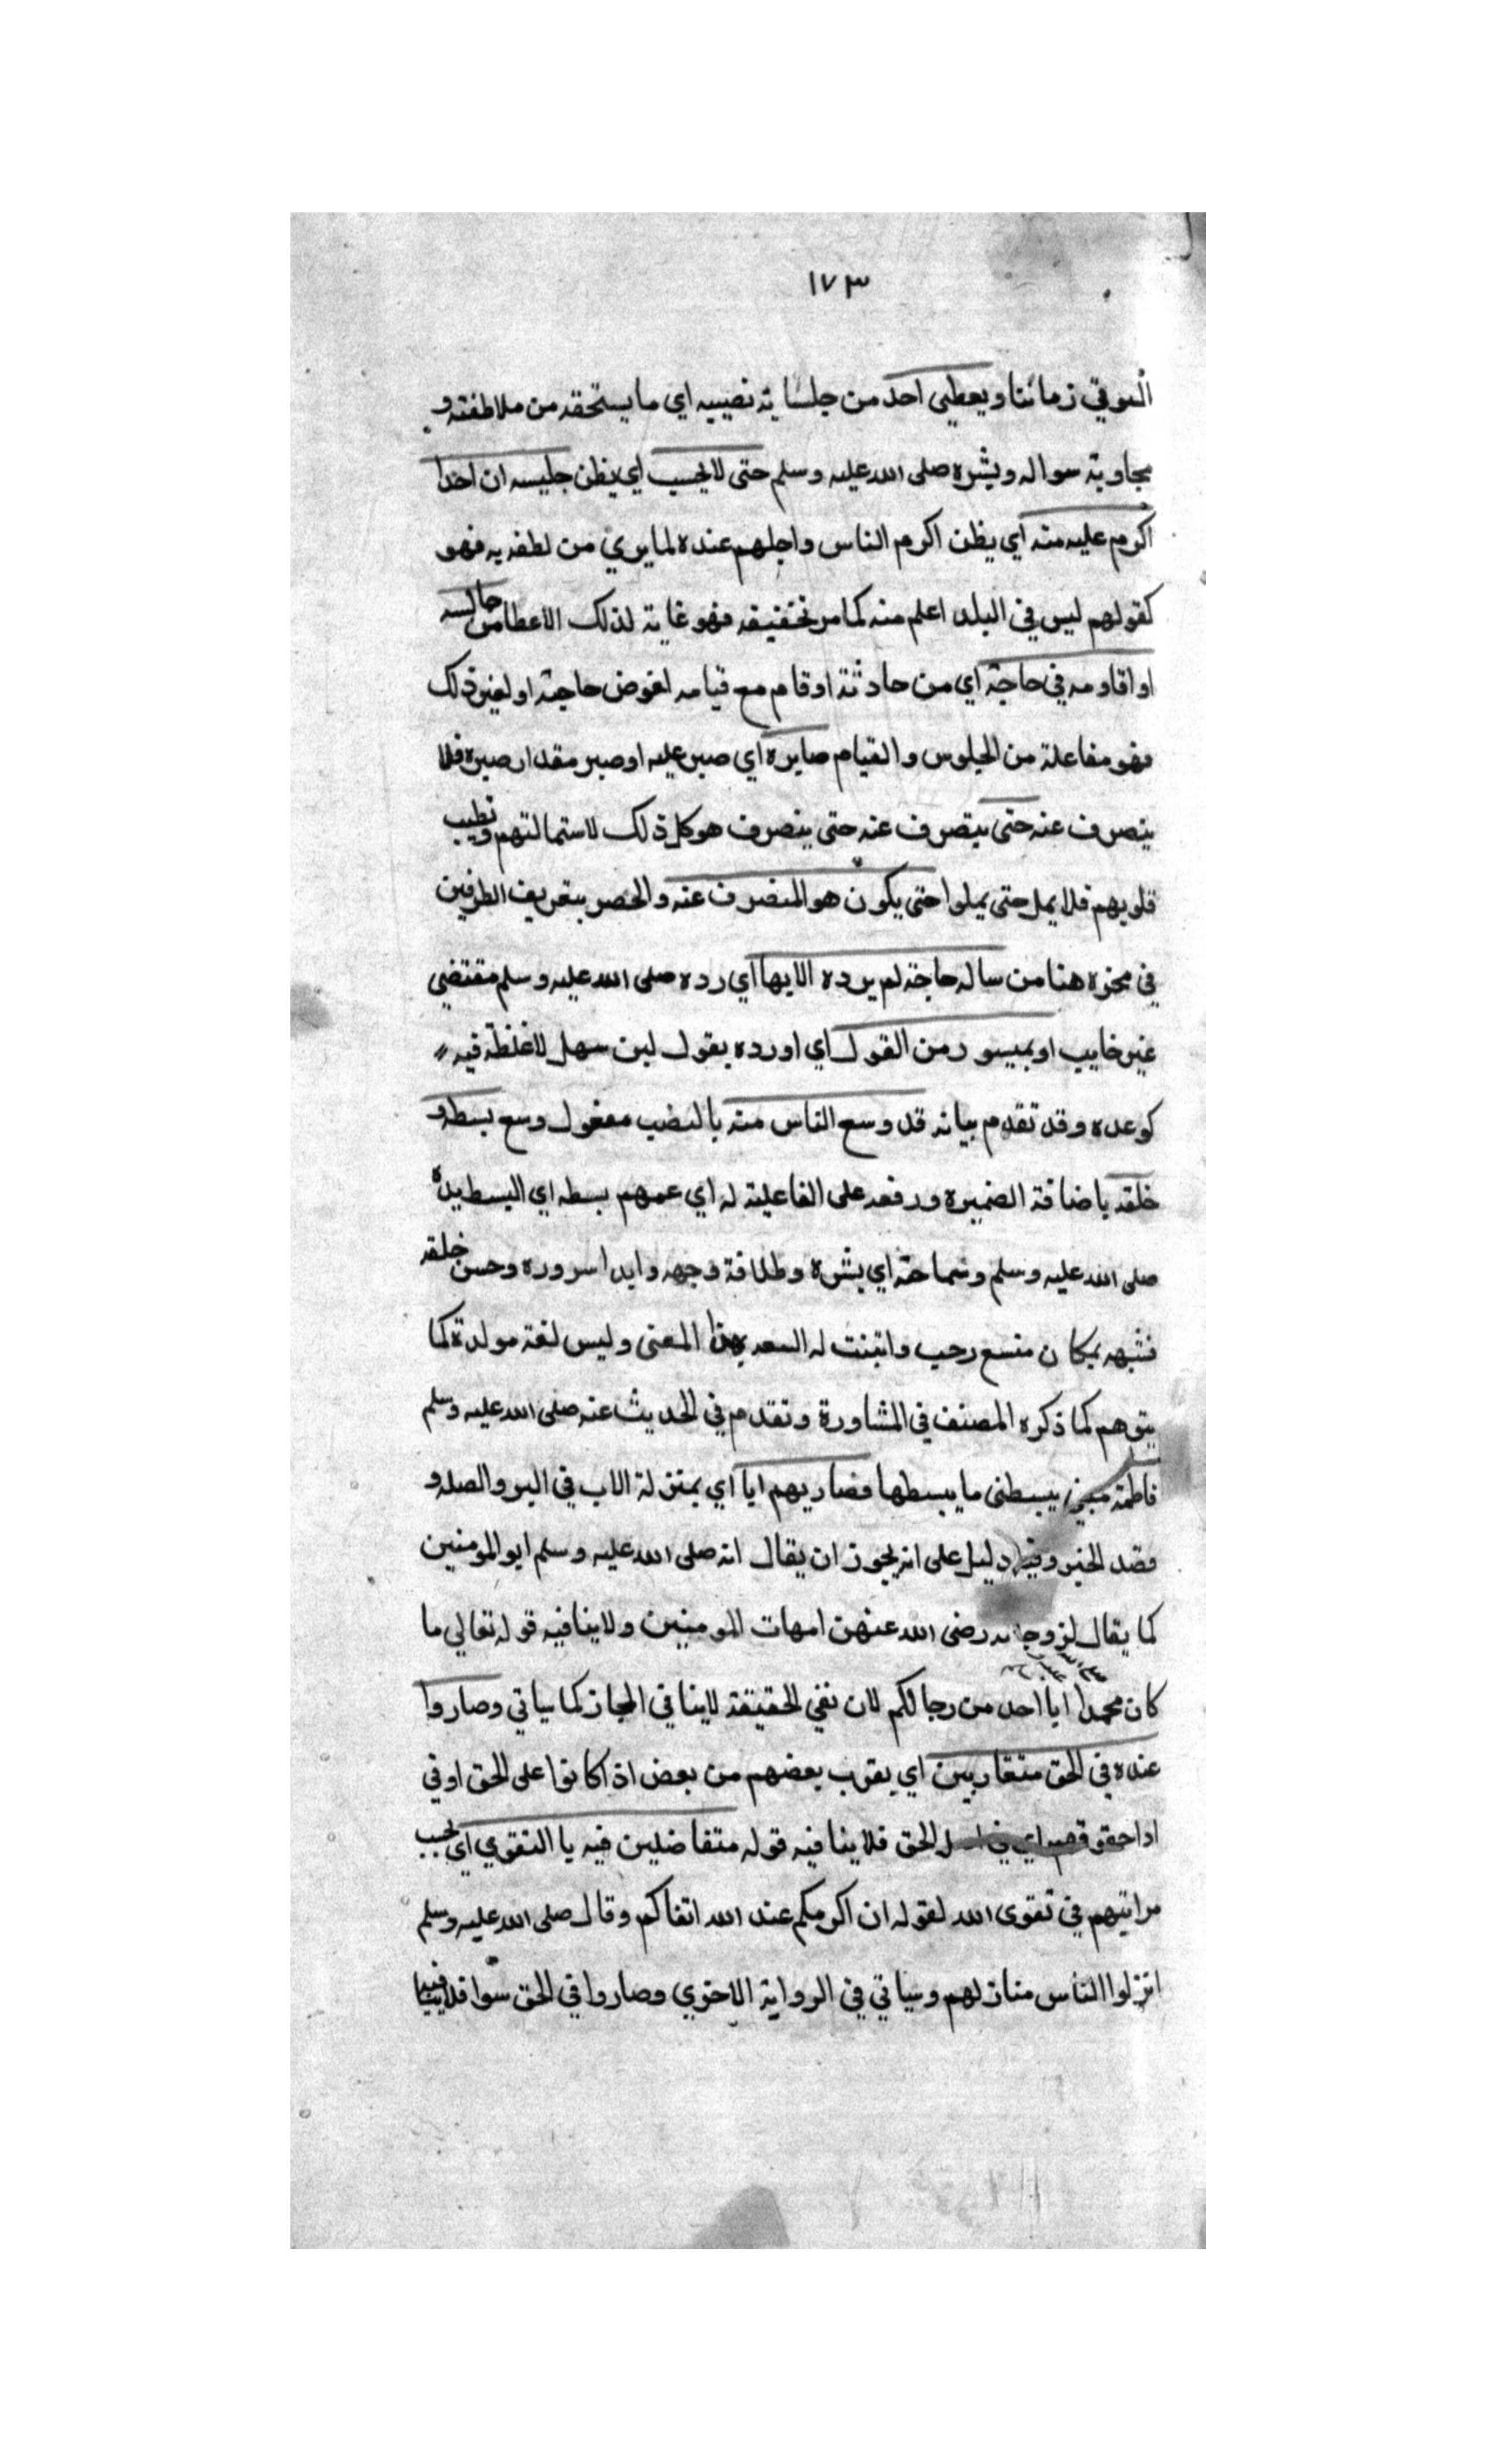 ١٧٣
السوقي زماننا ويعطي احد من جلسايه نصيبه اي ما يستحقه من ملاطفته و
مجاوبة سواله وبشره صلى الله عليه وسلم حتى لا يحسب اي يظن جليسه ان احدا
اكرم عليه منه اي يظن اكرم الناس واجلهم عنده لما يري من لطفه به فهو
كقولهم ليس في البلد اعلم منه كما مر تحقيقه فهو غاية لذلك الاعطا من جالسه
او اقاومه في حاجة اي من حادثة او قام مع قيامه لغرض حاجته او لغير ذلك
فهو مفاعلة من الجلوس والقيام صابره اي صبر عليه او صبر مقدار صبره فلا
ينصرف عنه حتى ينصرف عنه حتى ينصرف هو كل ذلك لاستمالتهم وتطيب
قلوبهم فلا يمل حتى يملوا حتى يكون هو المنصرف عنه والحصر بتعريف الطرفين
في محزه هنا من ساله حاجة لم يرده الا بها اي رده صلى الله عليه وسلم مقتضي
غير خايب او بميسور من القول اي او رده بقول لين سهل لا غلظة فيه
كوعده وقد تقدم بيانه قد وسع الناس منه بالنصب مفعول وسع بسطه و
خلقه باضافة الضميره ورفعه على الفاعلية له اي عمهم بسطه اي البسط يده
صلى الله عليه وسلم وسماحته اي بشره وطلاقة وجهه وابدا سروره وحسن خلقه
فشبهه بمكان متسع رحب واثبت له السعه بهذا المعنى وليس لغة مولدة كما
يتوهم كما ذكره المصنف في المشاورة وتقدم في الحديث عنه صلى الله عليه وسلم
فاطمة مني يبسطني ما يبسطها فصار لهم ابا اي بمنزلة الاب في البر والصله و
قصد الخير وفيه دليل على انه يجوز ان يقال انه صلى الله عليه وسلم ابو المومنين
كما يقال لزوجاته رضى الله عنهن امهات المومنين ولا ينافيه قوله تعالي ما
كان محمد ابا احد من رجالكم لان نفي الحقيقة لا ينافي المجاز كما سياتي وصاروا
عنده في الحق متقاربين اي يقرب بعضهم من بعض اذ كانوا على الحق او في
ادا حقوقهم اي في الحق فلا ينافيه قوله متفاضلين فيه بالتقوي اي بحسب
مراتبهم في تقوى الله لقوله ان اكرمكم عند الله اتقاكم وقال صلى الله عليه وسلم
انزلوا الناس منازلهم وسياتي في الرواية الاخري وصاروا في الحق سوا فلا ينافيها